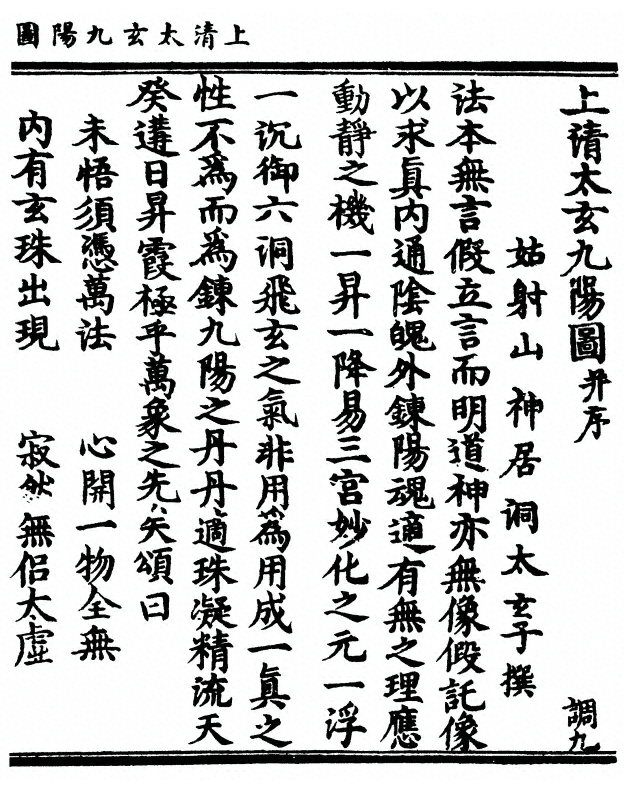 上清太玄九陽圖
上清太玄九陽圖并序
調九
姑射山神居洞太玄子撰
法本無言假立言而明道神亦無像假託像
以求眞内通陰魄外鍊陽魂適有無之理應
動靜之機一昇一降易三宮妙化之元一浮
一沉御六洞飛玄之氣非用爲用成一眞之
性不爲而爲鍊九陽之丹丹適珠凝精流天
癸遘日昇霞極乎萬象之先矣頌曰
未悟須憑萬法 心開一物全無
内有玄珠出現 寂然無侶太虛